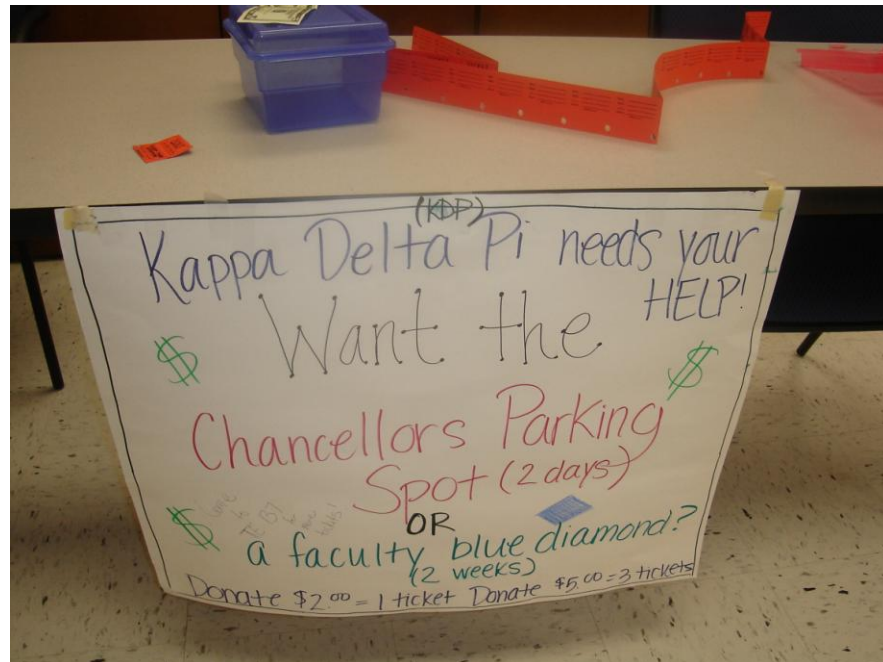 (KDP)
Kappa Delta Pi needs your
HELP!
Want the
$ $
Chancellors Parking
Spot (2 days)
$ OR
a faculty blue diamond?
(2 weeks)
Donate $2.00 = 1 ticket Donate $5.00 = 3 tickets